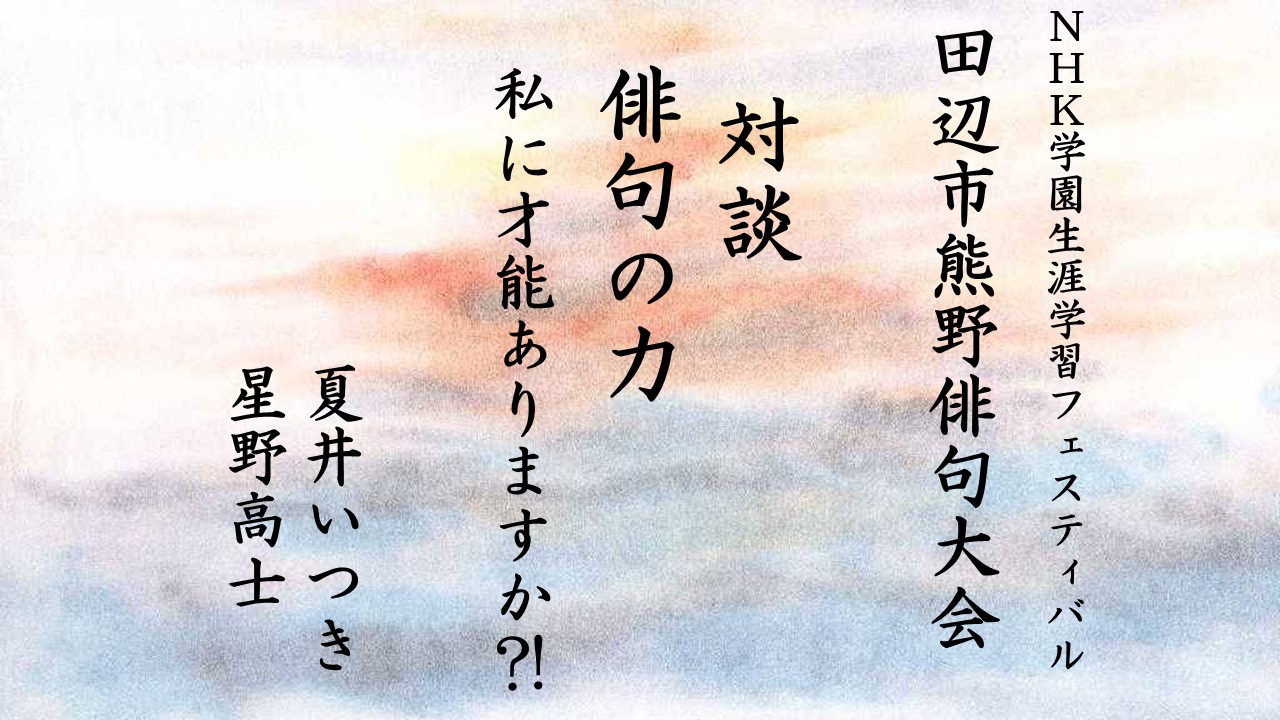 NHK学園生涯学習フェスティバル
田辺市熊野俳句大会
対談
俳句の力
私に才能ありますか?!
夏井いつき
星野高士